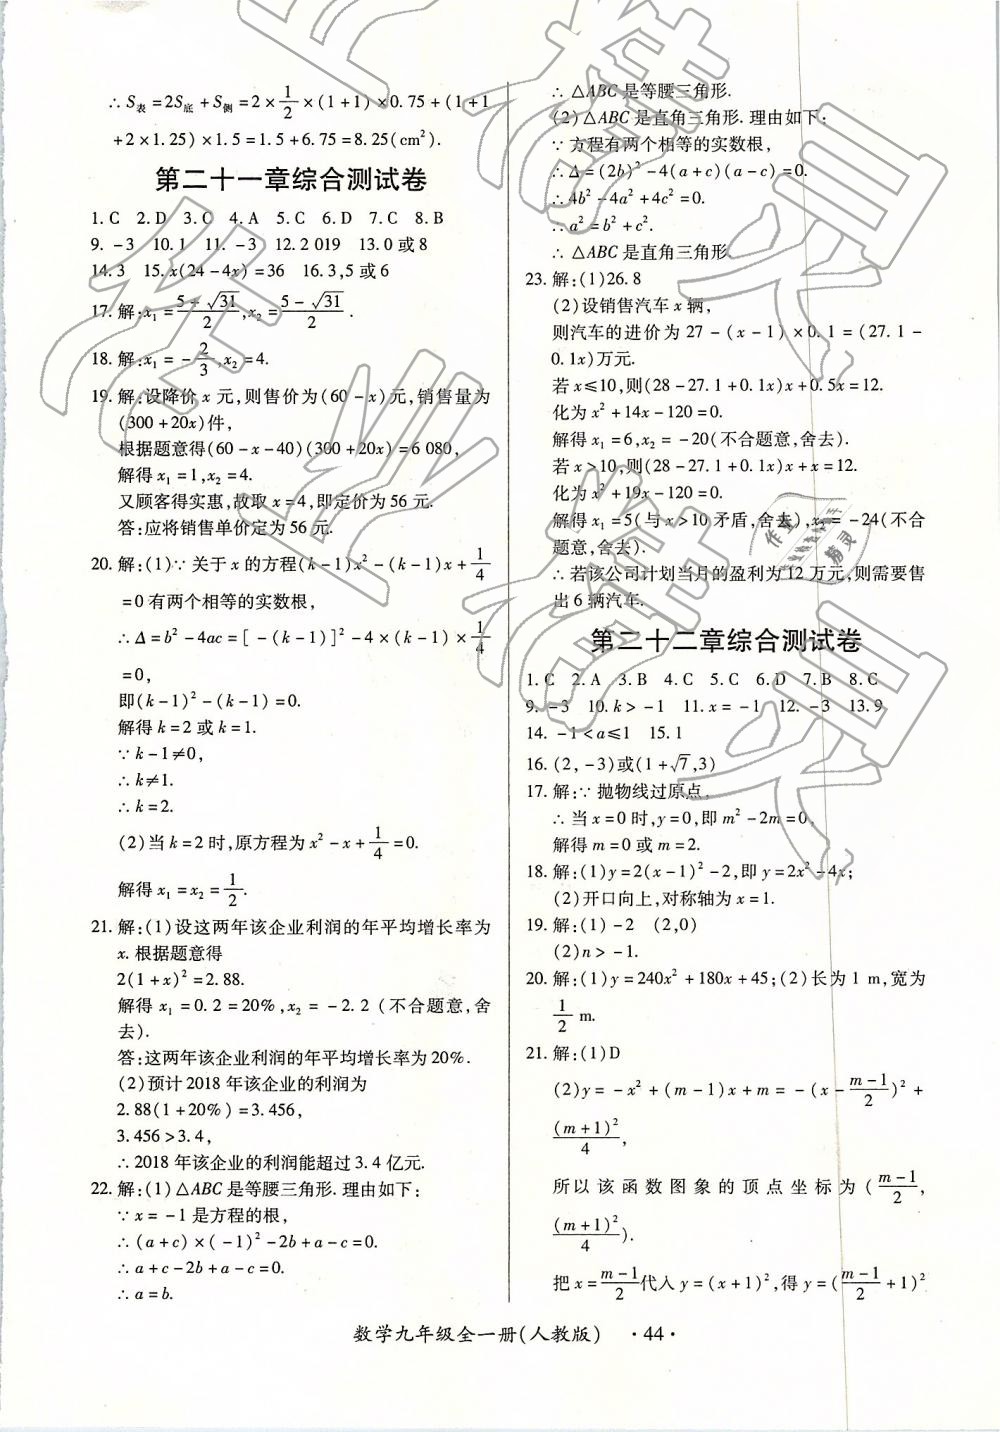 ∴ S表=2S底+S侧=2×1/2×(1+1)×0.75+(1+1
+2×1.25)×1.5=1.5+6.75=8.25(cm²).
第二十一章综合测试卷
1. C 2. D 3. C 4. A 5. C 6. D 7. C 8. B
9. -3 10. 1 11. -3 12. 2 019 13. 0 或 8
14. 3 15. x(24-4x)=36 16. 3,5 或 6
17. 解:x₁=(5+√31)/2,x₂=(5-√31)/2.
18. 解:x₁=-2/3,x₂=4.
19. 解:设降价 x 元,则售价为(60-x)元,销售量为
(300+20x)件,
根据题意得(60-x-40)(300+20x)=6 080,
解得 x₁=1,x₂=4.
又顾客得实惠,故取 x=4,即定价为 56 元.
答:应将销售单价定为 56 元.
20. 解:(1)∵ 关于 x 的方程(k-1)x²-(k-1)x+1/4
=0 有两个相等的实数根,
∴ Δ=b²-4ac=[-(k-1)]²-4×(k-1)×1/4
=0,
即(k-1)²-(k-1)=0.
解得 k=2 或 k=1.
∵ k-1≠0,
∴ k≠1.
∴ k=2.
(2)当 k=2 时,原方程为 x²-x+1/4=0.
解得 x₁=x₂=1/2.
21. 解:(1)设这两年该企业利润的年平均增长率为
x. 根据题意得
2(1+x)²=2.88.
解得 x₁=0.2=20%,x₂=-2.2(不合题意,舍
去).
答:这两年该企业利润的年平均增长率为 20%.
(2)预计 2018 年该企业的利润为
2.88(1+20%)=3.456,
3.456>3.4,
∴ 2018 年该企业的利润能超过 3.4 亿元.
22. 解:(1)△ABC 是等腰三角形. 理由如下:
∵ x=-1 是方程的根,
∴ (a+c)×(-1)²-2b+a-c=0.
∴ a+c-2b+a-c=0.
∴ a=b.
∴ △ABC 是等腰三角形.
(2)△ABC 是直角三角形. 理由如下:
∵ 方程有两个相等的实数根,
∴ Δ=(2b)²-4(a+c)(a-c)=0.
∴ 4b²-4a²+4c²=0.
∴ a²=b²+c².
∴ △ABC 是直角三角形.
23. 解:(1)26.8
(2)设销售汽车 x 辆,
则汽车的进价为 27-(x-1)×0.1=(27.1-
0.1x)万元.
若 x≤10,则(28-27.1+0.1x)x+0.5x=12.
化为 x²+14x-120=0.
解得 x₁=6,x₂=-20(不合题意,舍去).
若 x>10,则(28-27.1+0.1x)x+x=12.
化为 x²+19x-120=0.
解得 x₁=5(与 x>10 矛盾,舍去),x₂=-24(不合
题意,舍去).
∴ 若该公司计划当月的盈利为 12 万元,则需要售
出 6 辆汽车.
第二十二章综合测试卷
1. C 2. A 3. B 4. C 5. C 6. D 7. B 8. C
9. -3 10. k>-1 11. x=-1 12. -3 13. 9
14. -1<a≤1 15. 1
16. (2,-3)或(1+√7,3)
17. 解:∵ 抛物线过原点,
∴ 当 x=0 时,y=0,即 m²-2m=0,
解得 m=0 或 m=2.
18. 解:(1)y=2(x-1)²-2,即 y=2x²-4x;
(2)开口向上,对称轴为 x=1.
19. 解:(1)-2 (2,0)
(2)n>-1.
20. 解:(1)y=240x²+180x+45;(2)长为 1 m,宽为
1/2 m.
21. 解:(1)D
(2)y=-x²+(m-1)x+m=-(x-(m-1)/2)²+
(m+1)²/4,
所以该函数图象的顶点坐标为((m-1)/2,
(m+1)²/4).
把 x=(m-1)/2 代入 y=(x+1)²,得 y=((m-1)/2+1)²
数学九年级全一册(人教版) ·44·